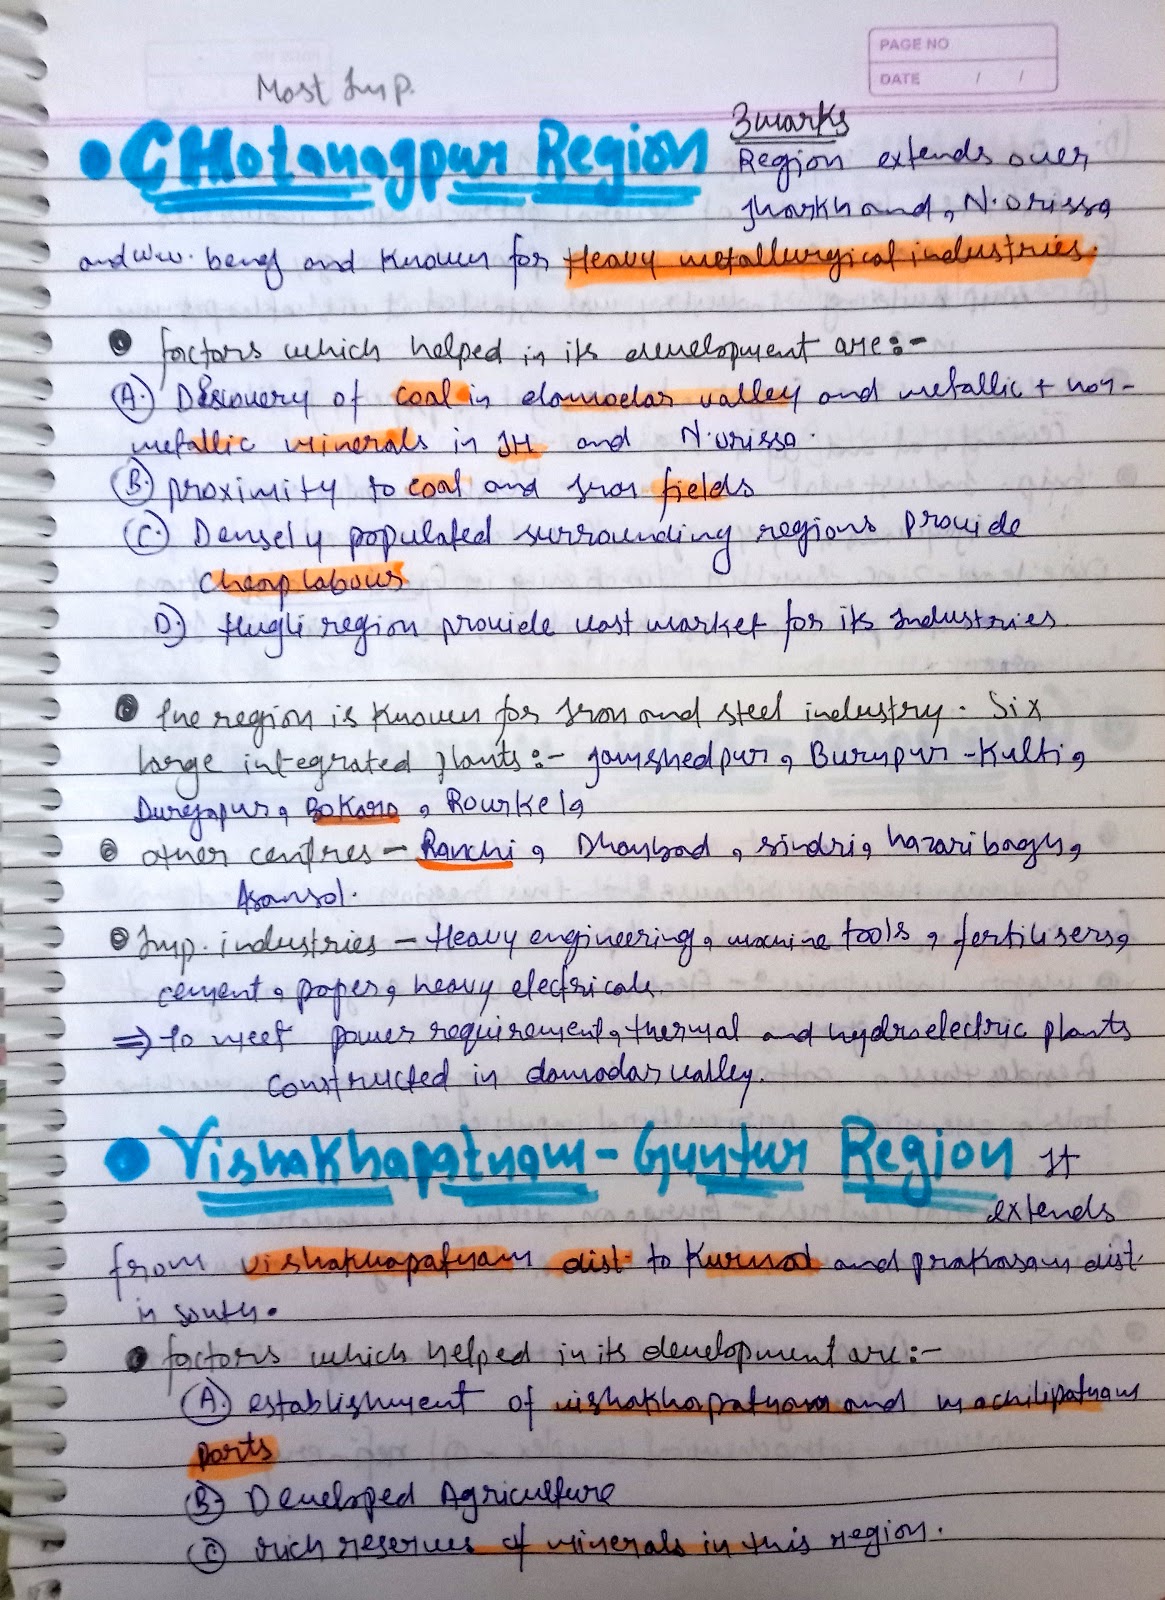 PAGE NO
DATE / /
Most Imp.
3 marks
• CHotanagpur Region Region extends over
Jharkhand, N. Orissa
and w. beng and known for Heavy metallurgical industries.
• factors which helped in its development are:-
(A.) Discovery of coal in damodar valley and metallic + non-
metallic minerals in JH and N. orissa.
(B.) proximity to coal and Iron fields
(C.) Densely populated surrounding regions provide
Cheap labour
D.) Hugli region provide vast market for its Industries.
• The region is known for Iron and steel industry. Six
large integrated plants:- jamshedpur, Burnpur-Kulti,
Durgapur, Bokaro, Rourkela
• other centres - Ranchi, Dhanbad, sindri, hazaribagh,
Asansol.
• Imp. industries - Heavy engineering, machine tools, fertilisers,
cement, paper, heavy electricals.
⇒ to meet power requirement, thermal and hydroelectric plants
constructed in damodar valley.
• Vishakhapatnam-Guntur Region It
extends
from vishakhapatnam dist. to Kurnool and prakasam dist.
in south.
• factors which helped in its development are:-
(A.) establishment of vishakhapatnam and machilipatnam
ports
(B.) Developed Agriculture
(C) rich reserves of minerals in this region.